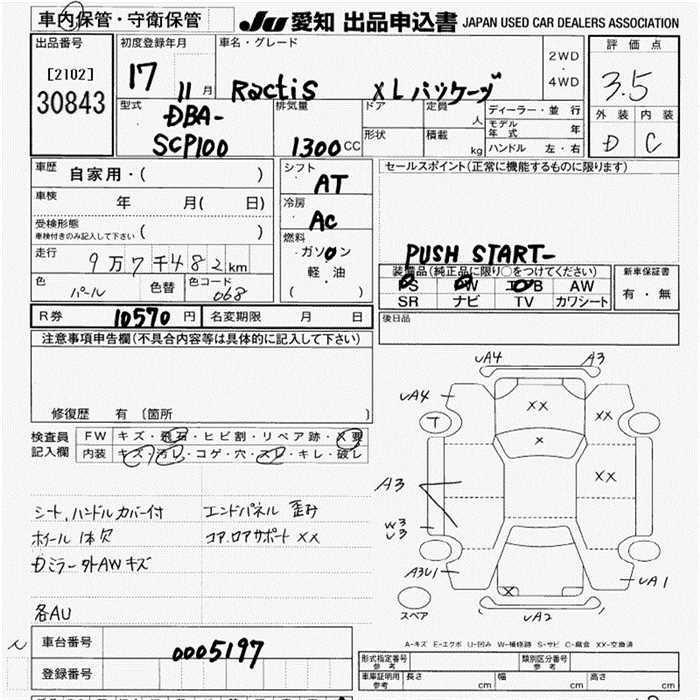 車内保管・守衛保管
JU 愛知 出品申込書 JAPAN USED CAR DEALERS ASSOCIATION
出品番号
[2102]
30843
初度登録年月
17
11 月
車名・グレード
Ractis XLパッケージ
2WD
・
4WD
評価点
3.5
外装 内装
D C
型式
DBA-
SCP100
排気量
1300CC
ドア
形状
定員
人
積載
kg
ディーラー・並行
モデル年式 年
ハンドル 左・右
車歴
自家用・( )
車検
年 月( 日)
受検形態
車検付きのみ記入して下さい ( )
走行
9万7千482km
色
パール
色替
色コード
068
シフト
AT
冷房
AC
燃料
ガソリン
軽油
( )
セールスポイント(正常に機能するものに限ります)
PUSH START-
装備品(純正品に限り○をつけてください)
PS PW エアB AW
SR ナビ TV カワシート
新車保証書
有・無
R券 10570円
名変期限 月 日
後日品
注意事項申告欄(不具合内容等は具体的に記入して下さい)
修復歴 有 [箇所 ]
検査員
記入欄
FW キズ・飛石・ヒビ割・リペア跡・X要
内装 キズ・汚レ・コゲ・穴・スレ・キレ・破レ
シート,ハンドルカバー付
ホイール1本欠
Dミラー外AWキズ
各AU
エンドパネル 歪み
コア,ロアサポートXX
UA4 A3
UA4
XX
XX
T
X
XX
A3
W3
U3
A3U1
X
UA1
UA2
スペア
A-キズ E-エクボ U-凹み W-補修跡 S-サビ C-腐食 XX-交換済
車台番号 0005197
登録番号
型式指定番号
参考
類別区分番号
参考
車庫証明用
参考
長さ cm
幅 cm
高さ cm